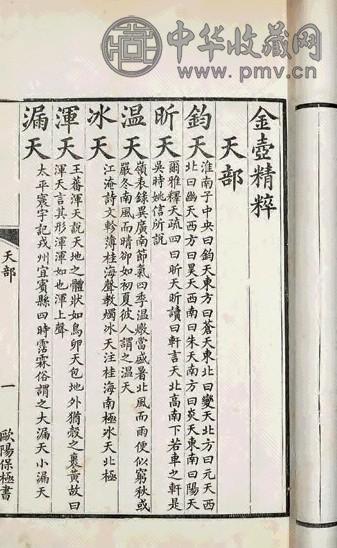 中华收藏网
www.pmv.cn
金壺精粹
天部
鈞天
淮南子中央曰鈞天東方曰蒼天東北曰變天北方曰元天西
北曰幽天西方曰昊天西南曰朱天南方曰炎天東南曰陽天
昕天
爾雅釋天疏四曰昕天昕讀曰軒言天北高南下若車之軒是
吳時姚信所說
温天
嶺表錄異廣南節氣四季温燠當盛暑北風而雨便似窮秋或
嚴冬南風而晴卻如初夏彼人謂之温天
冰天
江淹詩文軫薄桂海聲教燭冰天注桂海南極冰天北極
渾天
王蕃渾天說天地之體狀如鳥卵天包地外猶殼之裹黃故曰
渾天言其形渾渾如也渾上聲
漏天
太平寰宇記戎州宜賓縣四時霑霖俗謂之大漏天小漏天
天部
一
歐陽保極書